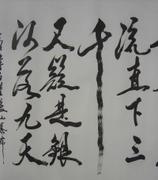 流直下三
千
尺疑是銀
河落九天